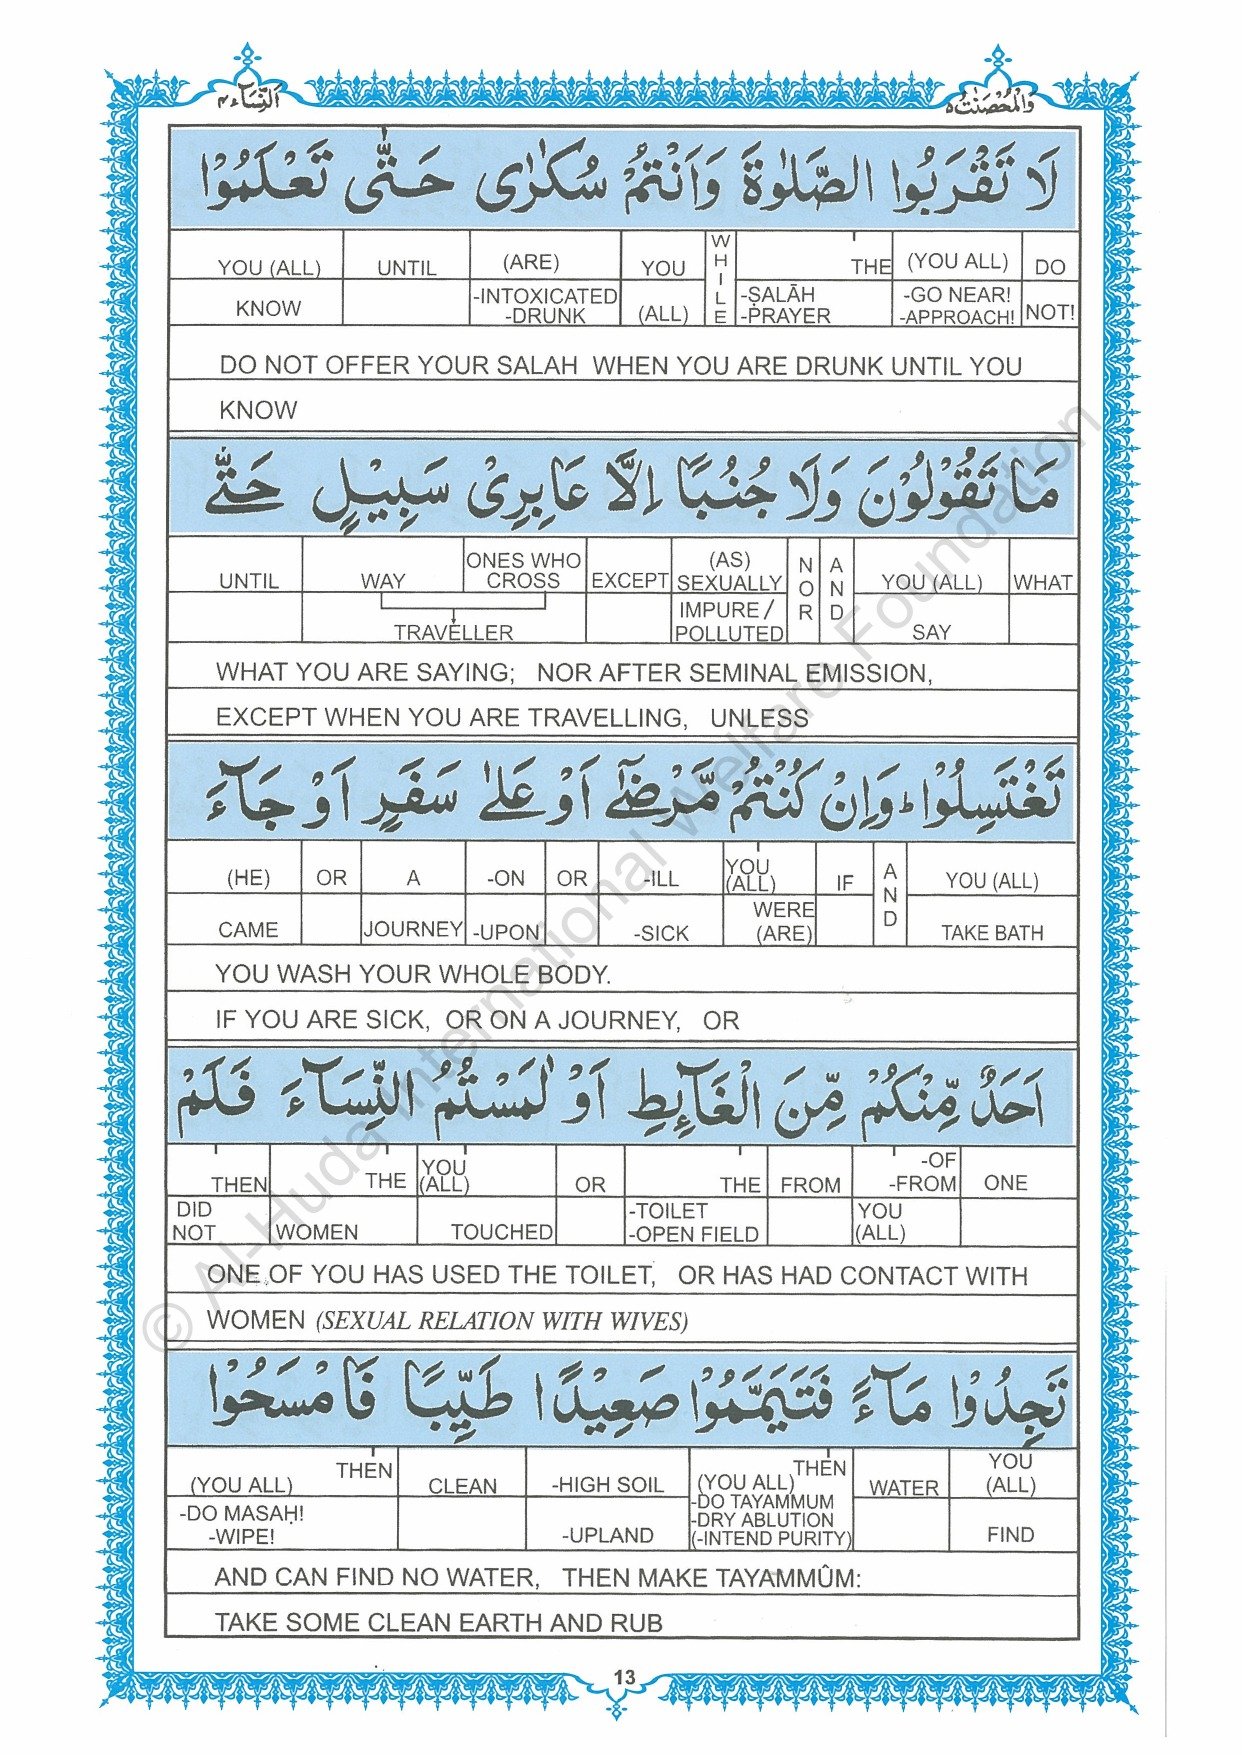 النساء ٤
والمحصنت ٥
لَا تَقْرَبُوا الصَّلٰوةَ وَاَنْتُمْ سُكٰرٰى حَتّٰى تَعْلَمُوْا
YOU (ALL) UNTIL (ARE) YOU WHILE THE (YOU ALL) DO
KNOW -INTOXICATED -DRUNK (ALL) -ṢALĀH -PRAYER -GO NEAR! -APPROACH! NOT!
DO NOT OFFER YOUR SALAH WHEN YOU ARE DRUNK UNTIL YOU
KNOW
مَا تَقُوْلُوْنَ وَلَا جُنُبًا اِلَّا عَابِرِىْ سَبِيْلٍ حَتّٰى
UNTIL WAY ONES WHO CROSS EXCEPT (AS) SEXUALLY NOR AND YOU (ALL) WHAT
TRAVELLER IMPURE / POLLUTED SAY
WHAT YOU ARE SAYING; NOR AFTER SEMINAL EMISSION,
EXCEPT WHEN YOU ARE TRAVELLING, UNLESS
تَغْتَسِلُوْا ؕ وَاِنْ كُنْتُمْ مَّرْضٰٓى اَوْ عَلٰى سَفَرٍ اَوْ جَآءَ
(HE) OR A -ON OR -ILL YOU (ALL) IF AND YOU (ALL)
CAME JOURNEY -UPON -SICK WERE (ARE) TAKE BATH
YOU WASH YOUR WHOLE BODY.
IF YOU ARE SICK, OR ON A JOURNEY, OR
اَحَدٌ مِّنْكُمْ مِّنَ الْغَآئِطِ اَوْ لٰمَسْتُمُ النِّسَآءَ فَلَمْ
THEN THE YOU (ALL) OR THE FROM -OF -FROM ONE
DID NOT WOMEN TOUCHED -TOILET -OPEN FIELD YOU (ALL)
ONE OF YOU HAS USED THE TOILET, OR HAS HAD CONTACT WITH
WOMEN (SEXUAL RELATION WITH WIVES)
تَجِدُوْا مَآءً فَتَيَمَّمُوْا صَعِيْدًا طَيِّبًا فَامْسَحُوْا
(YOU ALL) THEN CLEAN -HIGH SOIL (YOU ALL) THEN WATER YOU (ALL)
-DO MASAḤ! -WIPE! -UPLAND -DO TAYAMMUM -DRY ABLUTION (-INTEND PURITY) FIND
AND CAN FIND NO WATER, THEN MAKE TAYAMMÛM:
TAKE SOME CLEAN EARTH AND RUB
13
© Al-Huda International Welfare Foundation